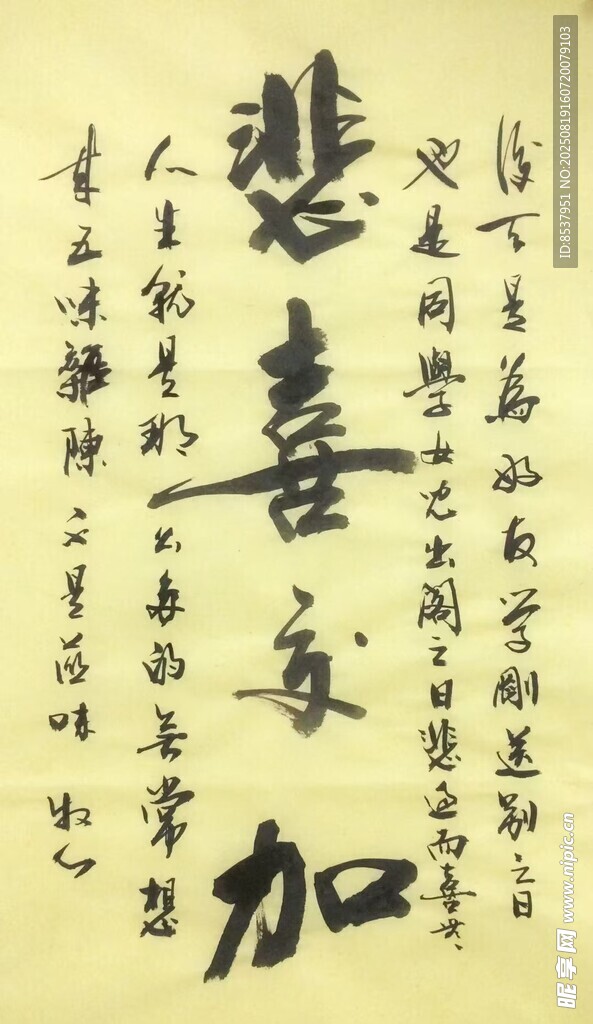 後天是為好友学剛送别之日
也是同學女兒出閣之日悲過而喜
悲喜交加
人生就是那么多的無常想
来五味雜陳 是滋味 牧心
ID:8537951 NO:20250819160720079103
昵享网 www.nipic.cn